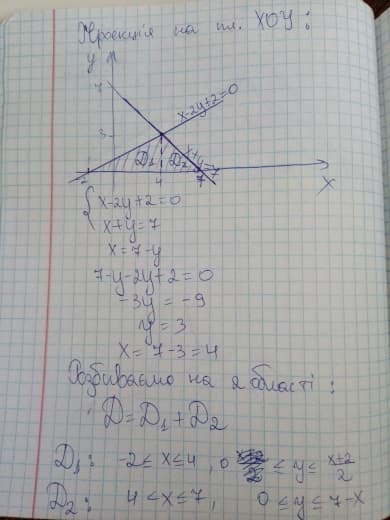 Проекція на пл. XOY:
y
7
x-2y+2=0
3
D₁ D₂ x+y=7
-2 4 7
X
{ x-2y+2=0
x+y=7
x=7-y
7-y-2y+2=0
-3y=-9
y=3
x=7-3=4
Розбиваємо на 2 області:
D=D₁+D₂
D₁: -2≤x≤4, 0 ≤y≤ x+2/2
D₂: 4≤x≤7, 0≤y≤7-x